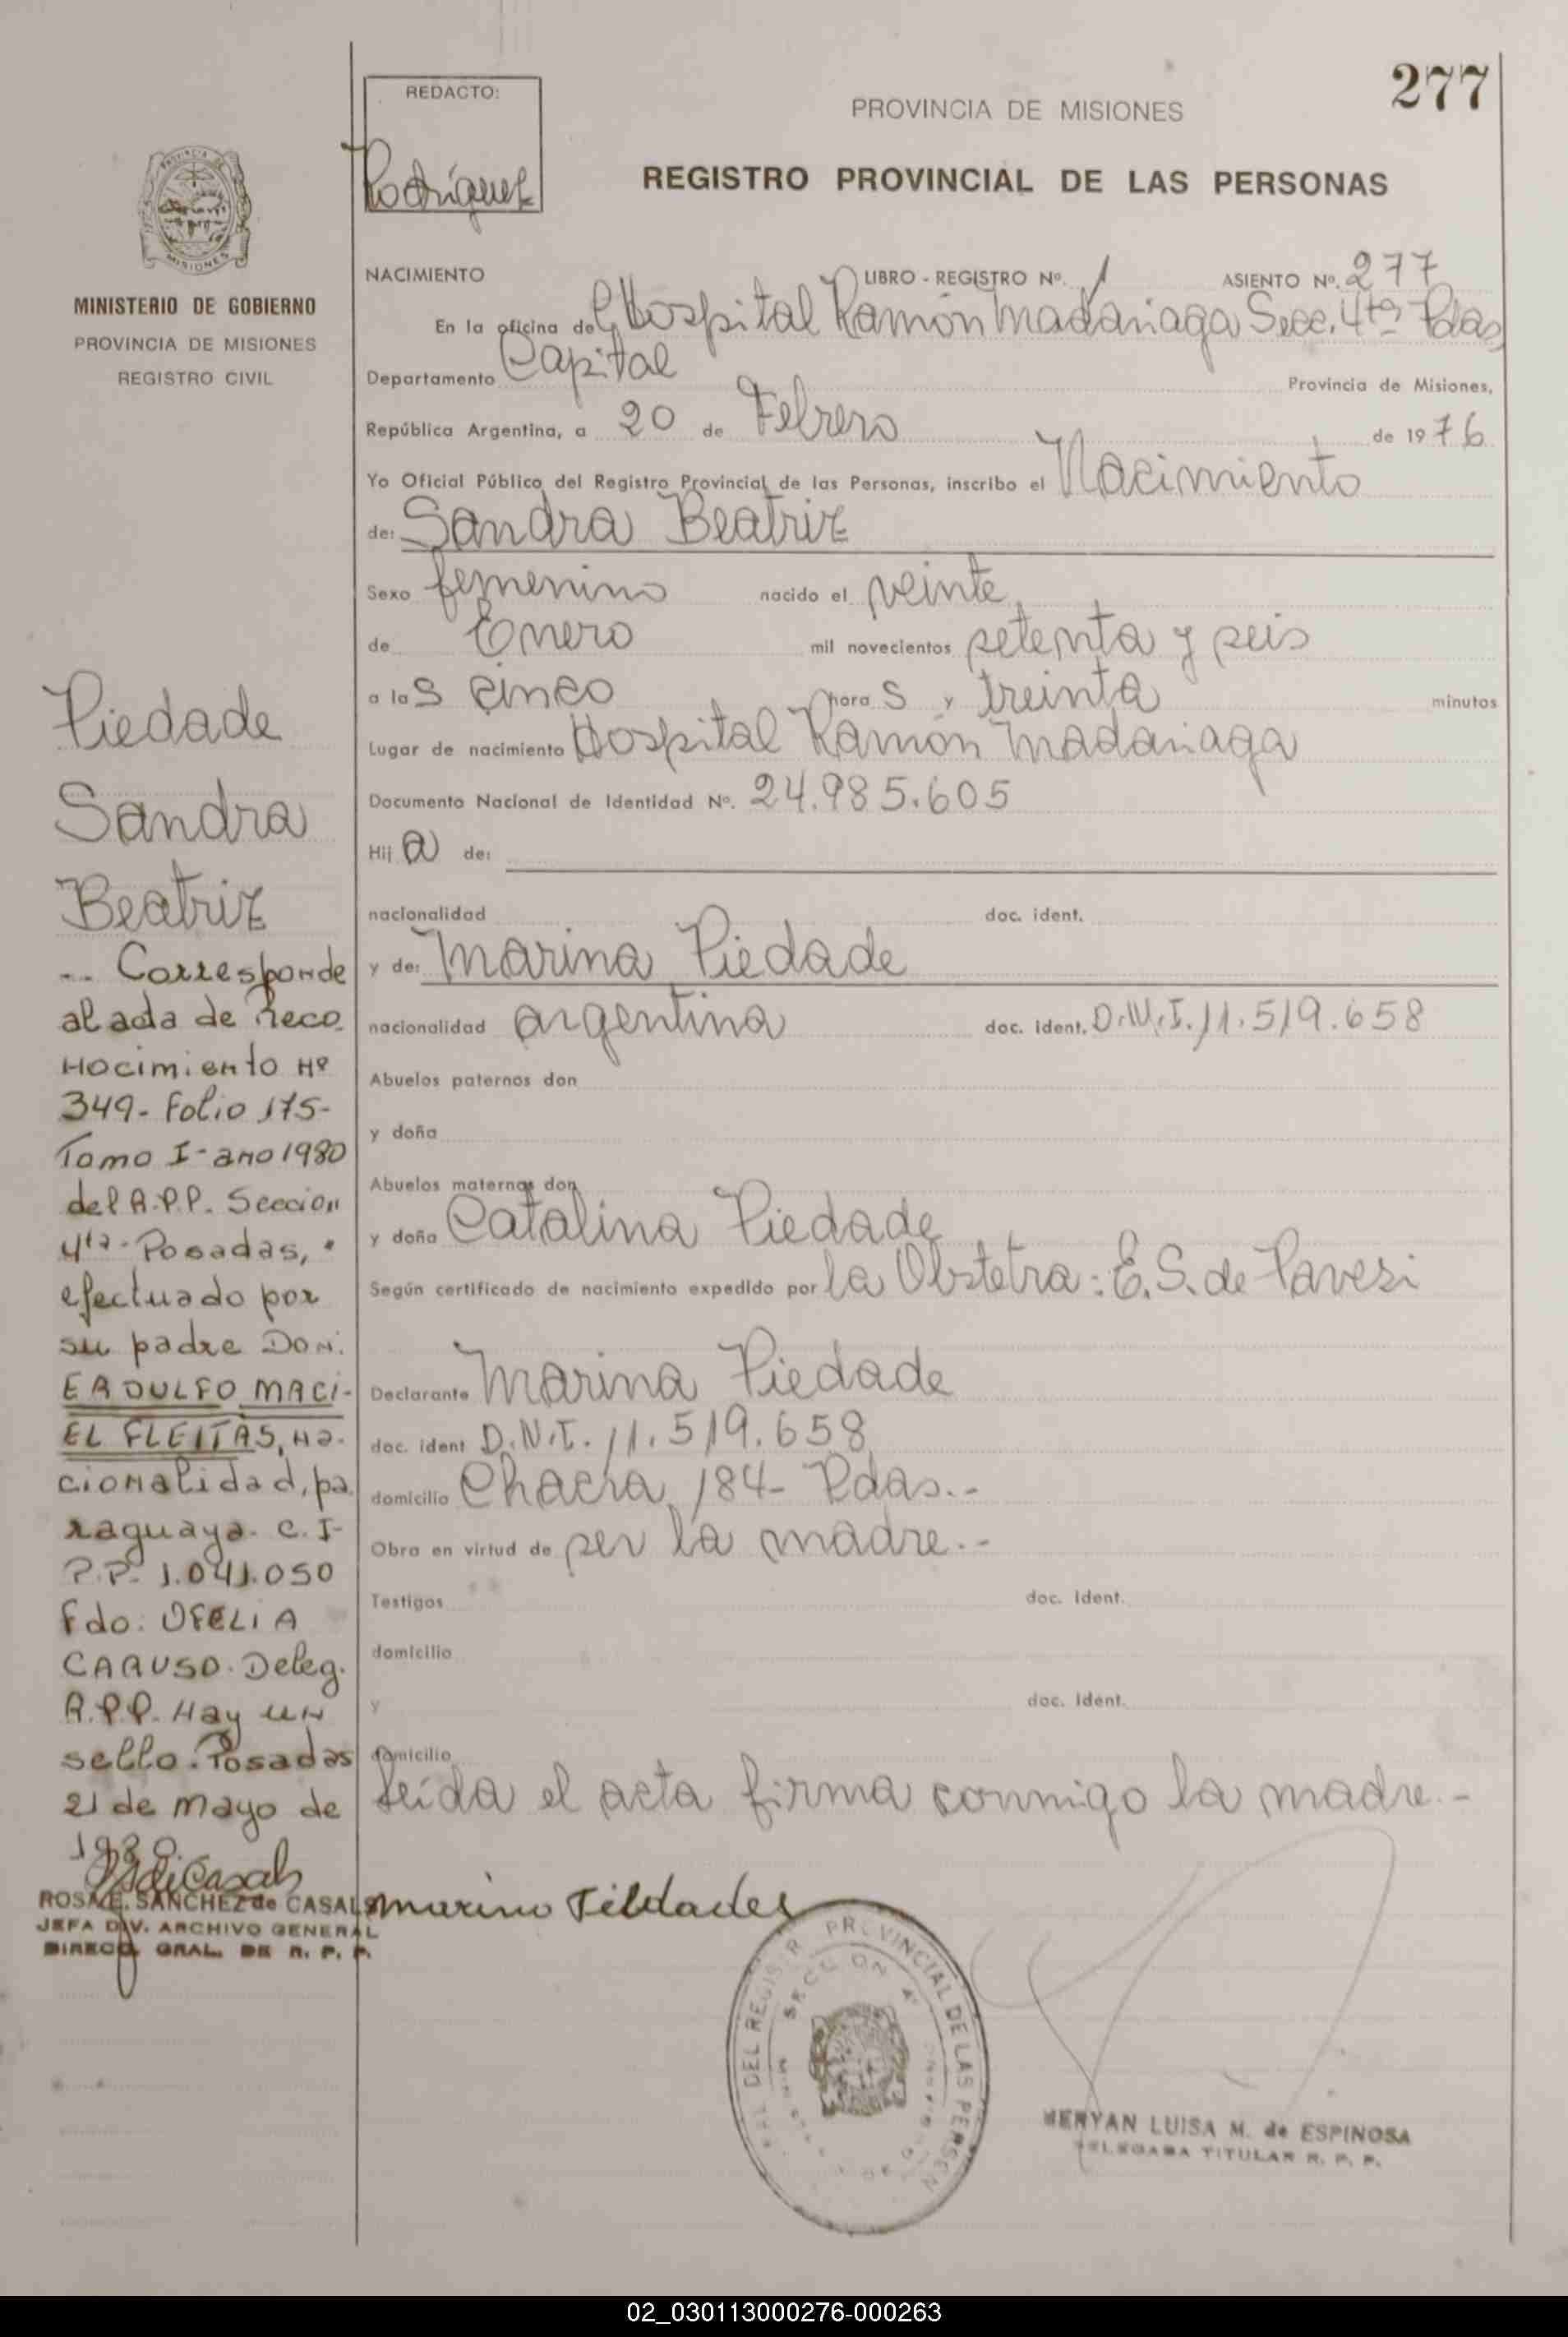 277
REDACTO:
Rodríguez
PROVINCIA DE MISIONES
REGISTRO PROVINCIAL DE LAS PERSONAS
MINISTERIO DE GOBIERNO
PROVINCIA DE MISIONES
REGISTRO CIVIL
NACIMIENTO LIBRO - REGISTRO Nº. 1 ASIENTO Nº. 277
En la oficina del Hospital Ramón Madariaga Secc. 4ta Pdas
Departamento Capital Provincia de Misiones,
República Argentina, a 20 de Febrero de 1976
Yo Oficial Público del Registro Provincial de las Personas, inscribo el Nacimiento
de: Sandra Beatriz
Sexo femenino nacido el veinte
de Enero mil novecientos setenta y seis
a las cinco horas y treinta minutos
Lugar de nacimiento Hospital Ramón Madariaga
Documento Nacional de Identidad Nº. 24.985.605
Hija de:
nacionalidad doc. ident.
y de: Marina Piedade
nacionalidad argentina doc. ident. D.N.I. 11.519.658
Abuelos paternos don
y doña
Abuelos maternos don
y doña Catalina Piedade
Según certificado de nacimiento expedido por la Obstetra: E.S. de Pavesi
Declarante Marina Piedade
doc. ident D.N.I. 11.519.658
domicilio Chacra 184- Pdas.-
Obra en virtud de ser la madre.-
Testigos doc. Ident.
domicilio
y doc. Ident.
domicilio
Leída el acta firma conmigo la madre.-
Piedade
Sandra
Beatriz
-- Corresponde
al acta de Reco
nocimiento Nº
349- Folio 175-
Tomo I- año 1980
del R.P.P. Seccion
4ta- Posadas,
efectuado por
su padre Don.
EADULFO MACI-
EL FLEITAS, na-
cionalidad, pa
raguaya. C.I-
P.P- 1.041.050
Fdo: OFELIA
CARUSO. Deleg.
R.P.P. Hay un
sello. Posadas
21 de mayo de
1980
ROSA E. SANCHEZ de CASALS
JEFA DIV. ARCHIVO GENERAL
DIRECC. GRAL. DE R. P. P.
MERYAN LUISA M. de ESPINOSA
DELEGADA TITULAR R. P. P.
02_030113000276-000263